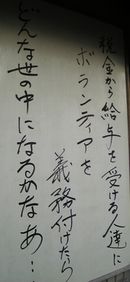 税金から給与を受ける人達に
ボランティアを
義務付けたら
どんな世の中になるかなあ…